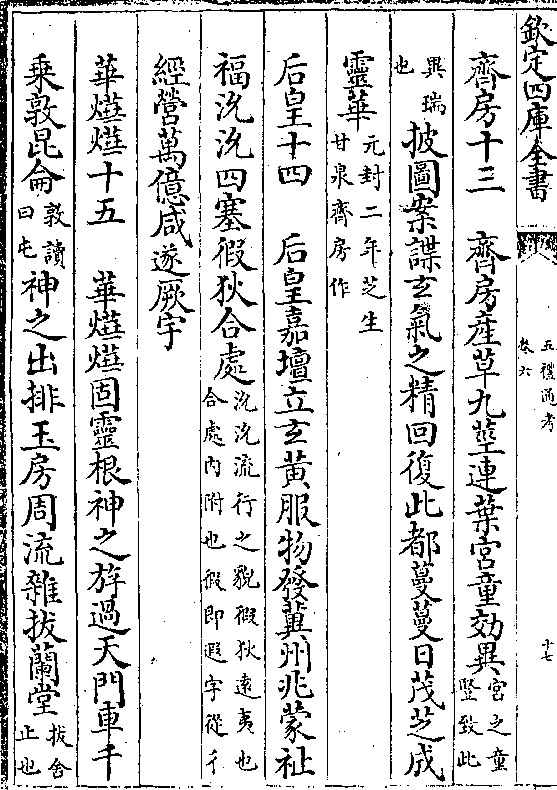 欽定四庫全書
五禮通考
卷六
十七
齊房十三　齊房產草九莖連葉宮童効異宮之童豎致此
異瑞也披圖案諜玄氣之精回復此都蔓蔓日茂芝成
靈華元封二年芝生甘泉齊房作
后皇十四　后皇嘉壇立玄黃服物發冀州兆蒙祉
福沇沇四塞假狄合處沇沇流行之貌假狄遠夷也合處内附也假即遐字從彳
經營萬億咸遂厥宇
華爗爗十五　華爗爗固靈根神之斿過天門車千
乗敦昆侖敦讀曰屯神之出排玉房周流雜拔蘭堂拔舍止也